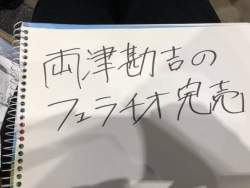 両津勘吉の
フェラチオ完売